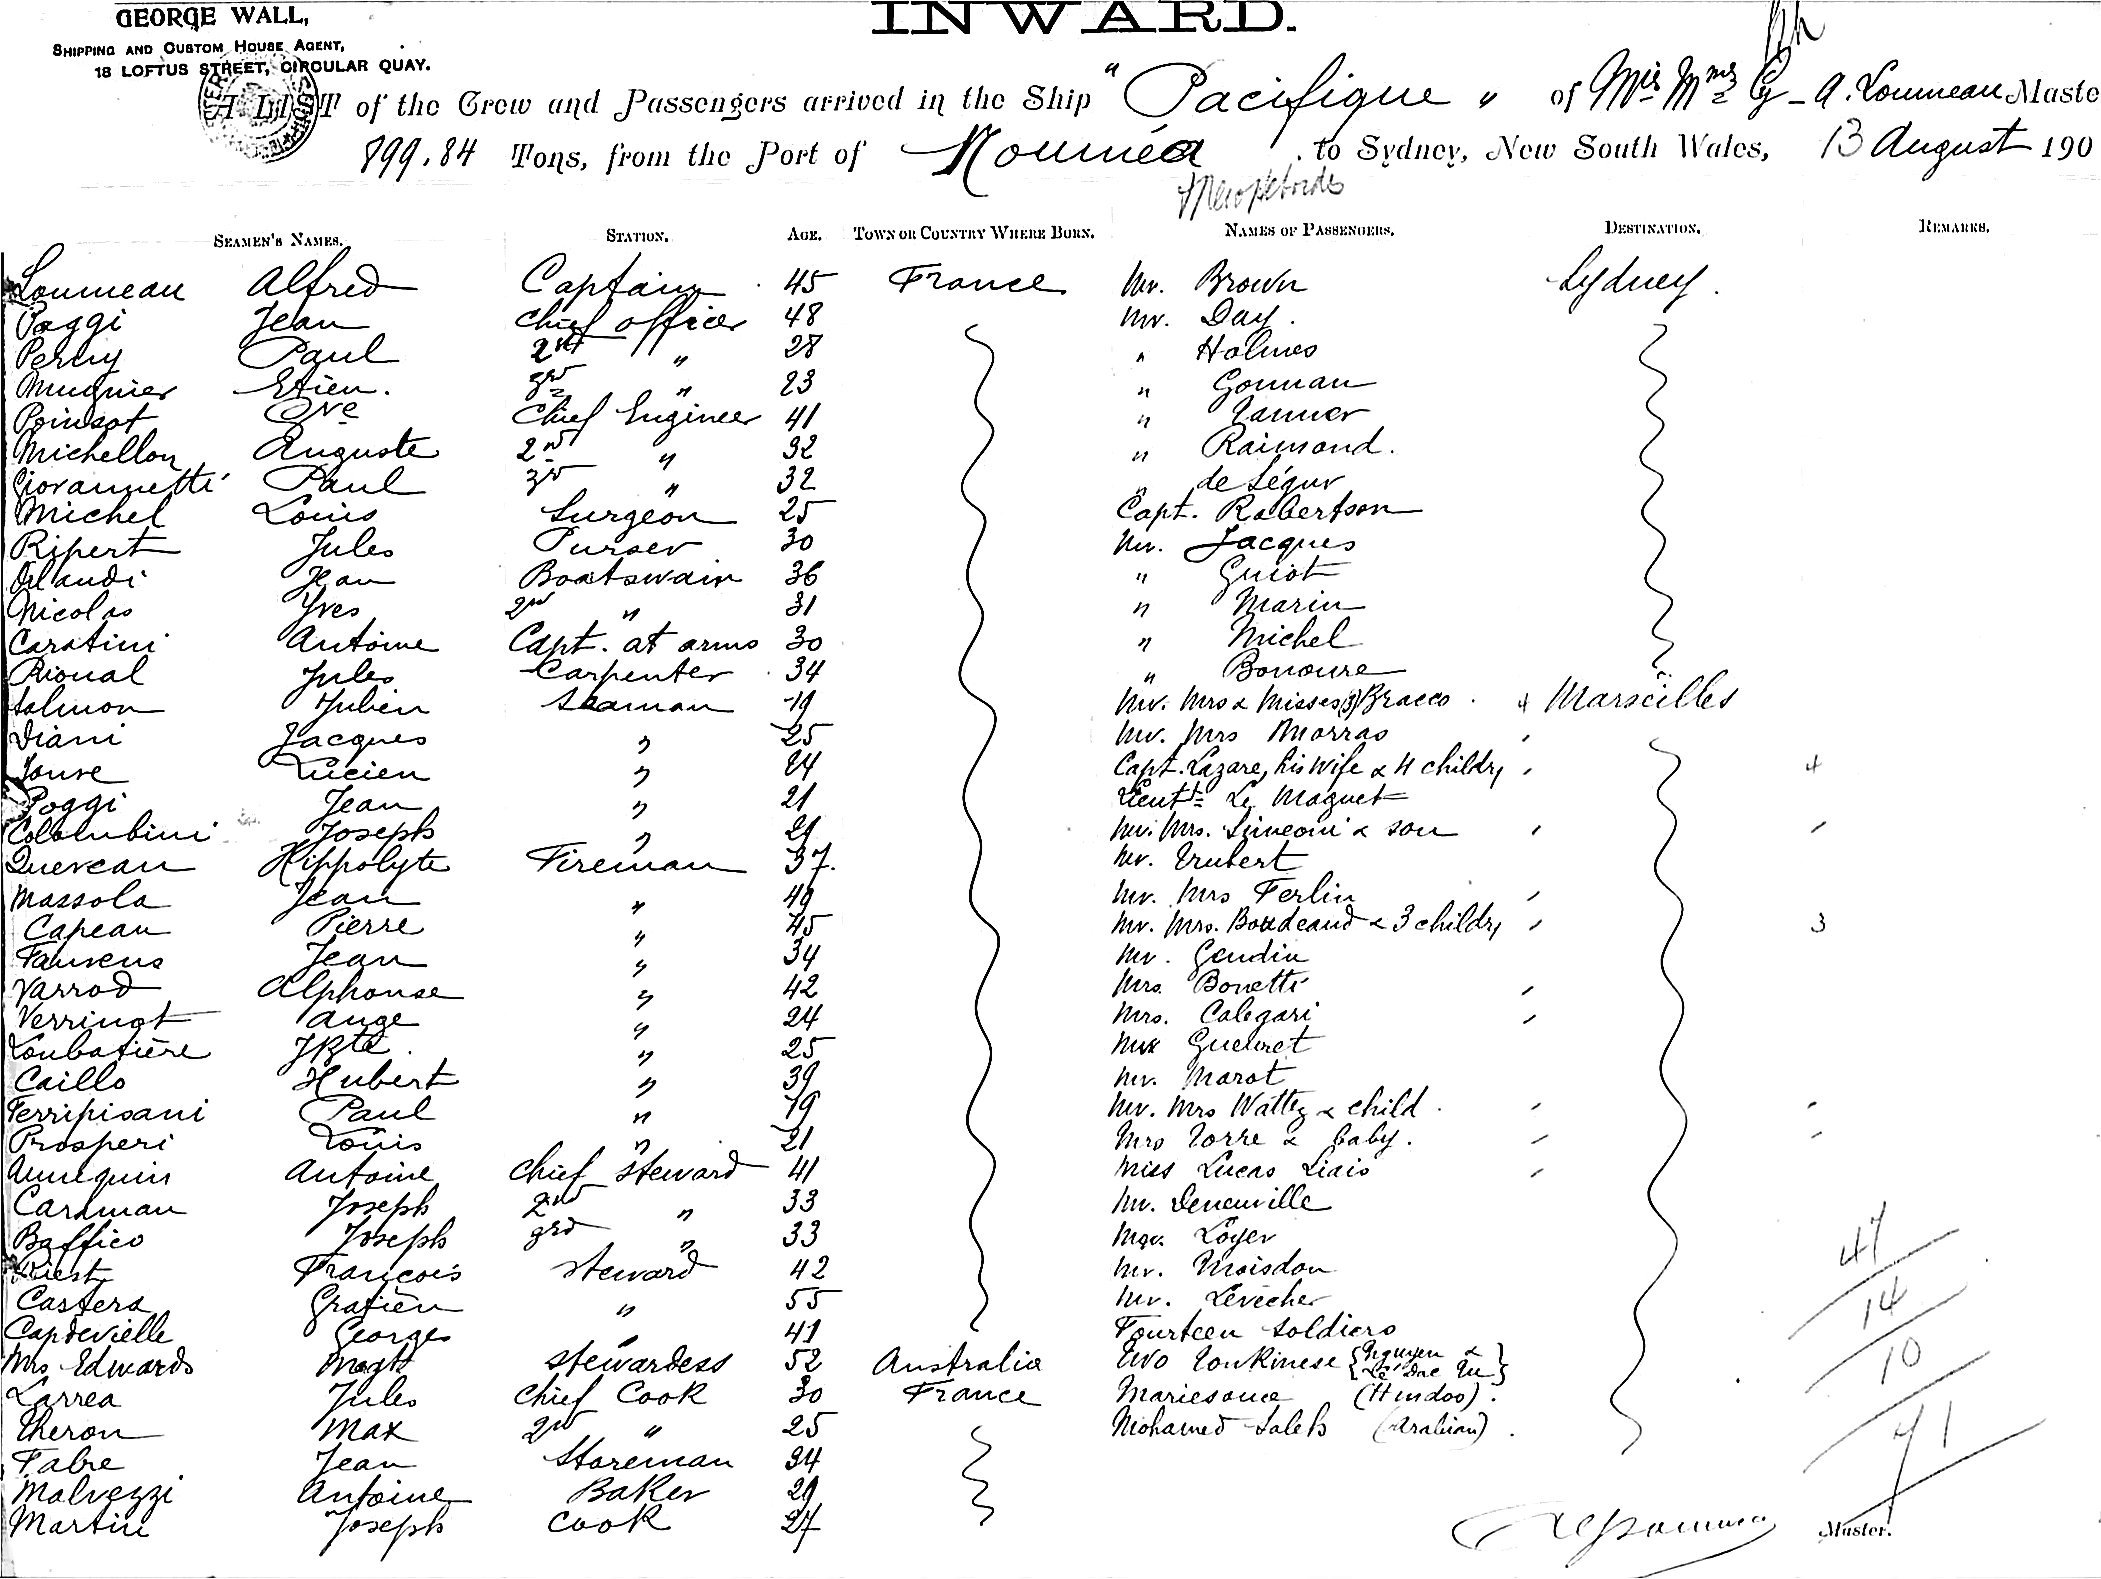 GEORGE WALL,
SHIPPING AND CUSTOM HOUSE AGENT,
18 LOFTUS STREET, CIRCULAR QUAY.
INWARD.
A LIST of the Crew and Passengers arrived in the Ship "Pacifique" of A. Loumeau Maste
899.84 Tons, from the Port of Nouméa to Sydney, New South Wales, 13 August 190
& New Hebrides
SEAMEN'S NAMES. STATION. AGE. TOWN OR COUNTRY WHERE BORN. NAMES OF PASSENGERS. DESTINATION. REMARKS.
Loumeau Alfred Captain 45 France Mr. Brown Sydney.
Poggi Jean Chief officer 48 Mr. Day.
Percy Paul 2nd " 28 " Holmes
Mugnier Etien. 3rd " 23 " Gounan
Poinsot Chief Engineer 41 " Tanner
Michellon Auguste 2nd " 32 " Raimond.
Giovannetti Paul 3rd " 32 " de Ségur
Michel Louis Surgeon 25 Capt. Robertson
Ripert Jules Purser 30 Mr. Jacques
Orlandi Jean Boatswain 36 " Guiot
Nicolas Yves 2nd " 31 " Marin
Caratini Antoine Capt. at arms 30 " Michel
Rioual Jules Carpenter 34 " Bonoure
Salmon Julien Seaman 19 Mr. Mrs & Misses (3) Bracco. 4 Marseilles
Diani Jacques " 25 Mr. Mrs Morras
Jouve Lucien " 24 Capt. Lazare, his wife & 4 childr, 4
Poggi Jean " 21 Lieutt Le Maguet
Colombini Joseph " 21 Mr. Mrs. Simeoni & son
Queveau Hippolyte Fireman 37. Mr. Trubert
Massola Jean " 49 Mr. Mrs Ferlin
Capeau Pierre " 45 Mr. Mrs. Boudeaud & 3 childr, 3
Faurens Jean " 34 Mr. Gendin
Varrod Alphonse " 42 Mrs. Bonetti
Verringt Ange " 24 Mrs. Calegari
Loubatière JBte. " 25 Gueuret
Caillo Hubert " 39 Mr. Marot
Ferripisani Paul " 19 Mr. Mrs Wattez & child.
Prosperi Louis " 21 Mrs Torre & baby.
Annequin Antoine Chief Steward 41 Miss Lucas Liais
Cardman Joseph 2nd " 33 Mr. Deneuville
Baffico Joseph 3rd " 33 Loyer
Riest François Steward 42 Mr. Moisdon 47
Castera Gratien " 55 Mr. Levecher 14
Capdevielle Georges " 41 Fourteen soldiers
Mrs Edwards Magtt Stewardess 52 Australia Two Tonkinese {Nguyen & Le Dac Tu} 10
Larrea Jules Chief Cook 30 France Mariesouce (Hindoo).
Theron Max 2nd " 25 Mohamed Saleb (Arabian). 71
Fabre Jean Storeman 34
Malvezzi Antoine Baker 29
Martin Joseph Cook 27 Master.